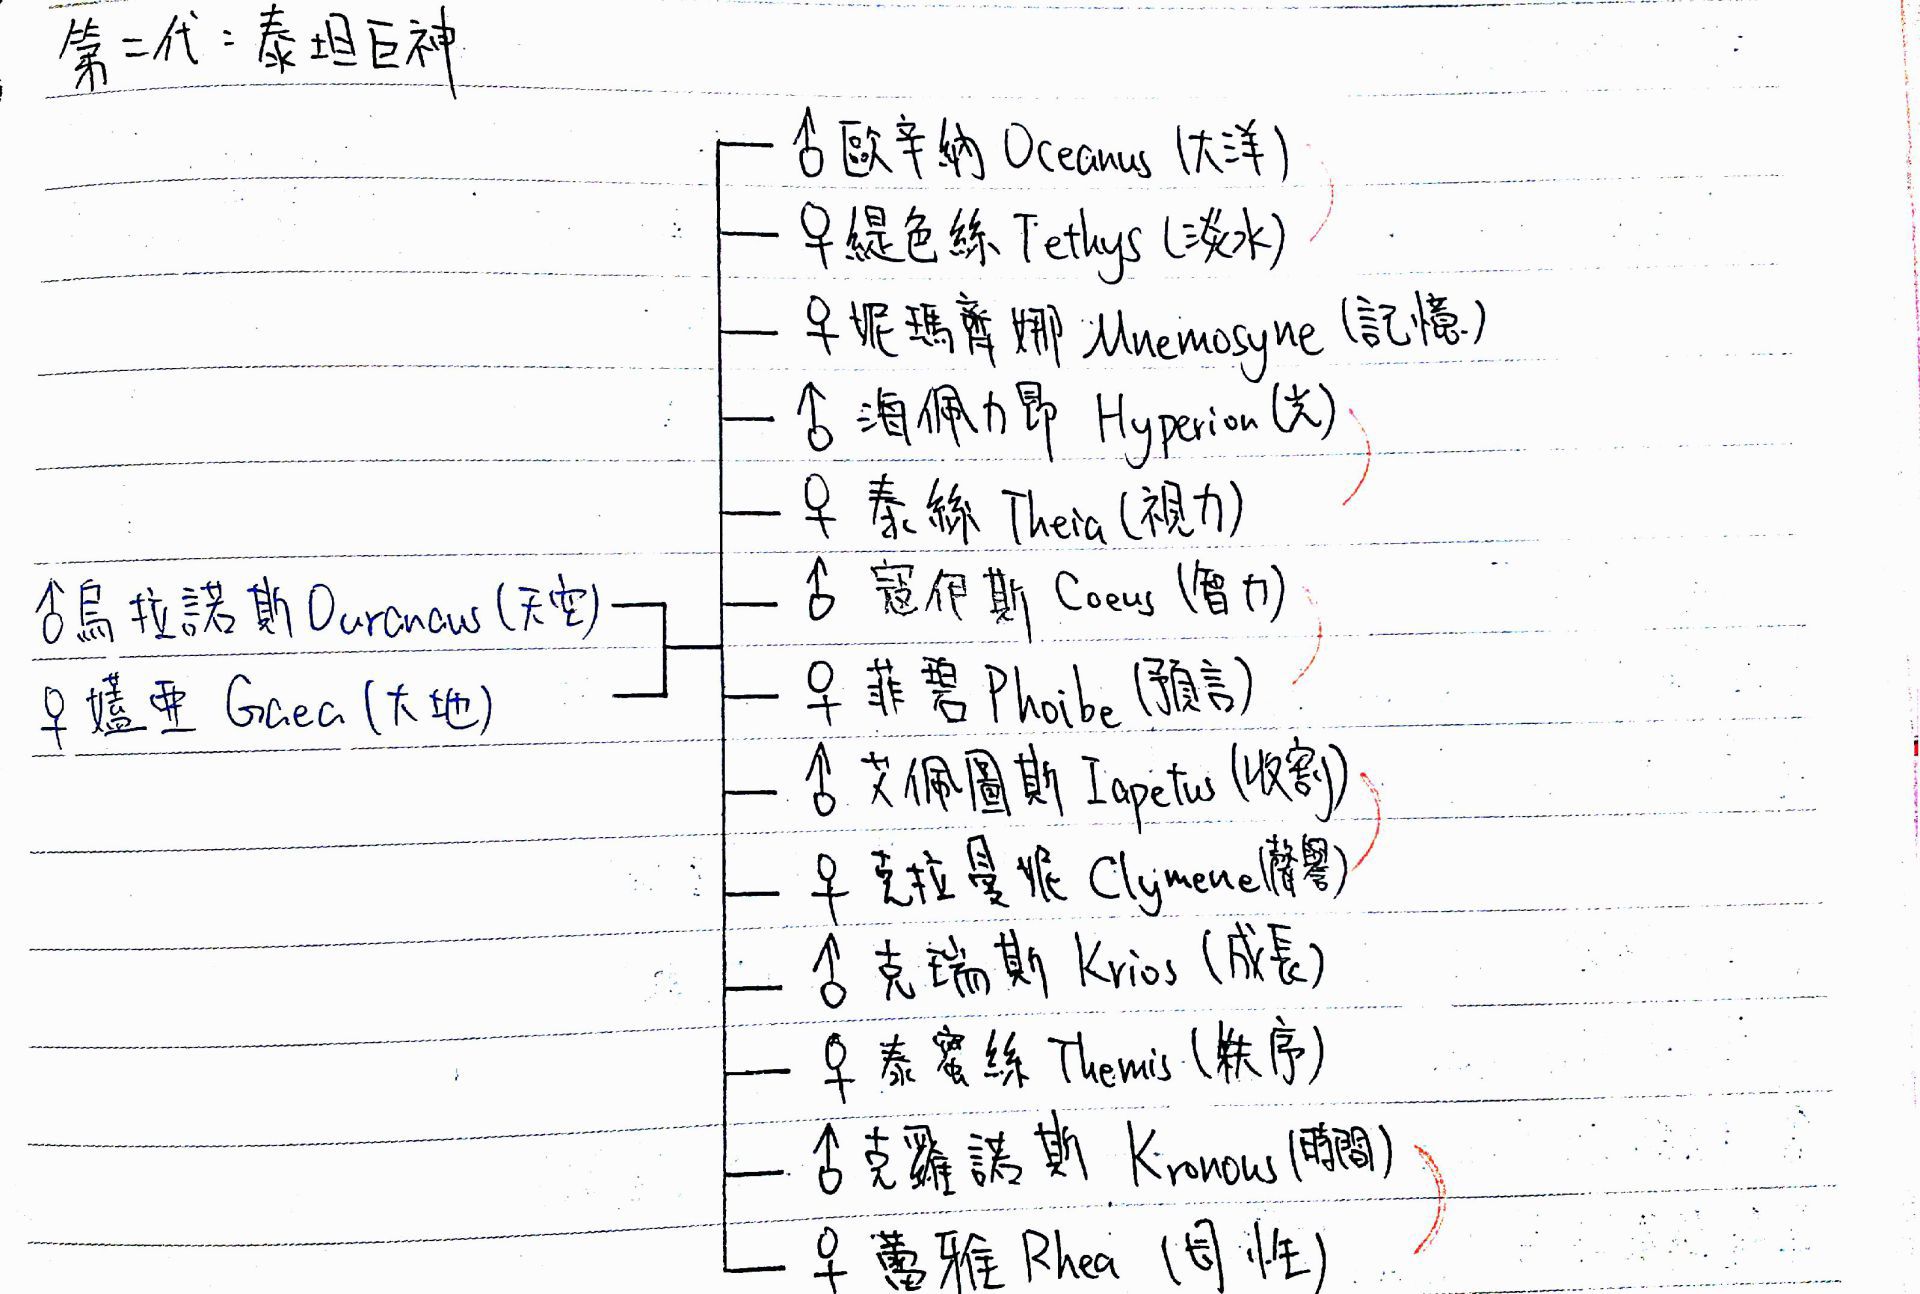 第二代：泰坦巨神
♂歐辛納 Oceanus (大洋)
♀緹色絲 Tethys (淡水)
♀妮瑪齊娜 Mnemosyne (記憶)
♂海佩力昂 Hyperion (光)
♀泰絲 Theia (視力)
♂寇伊斯 Coeus (智力)
♀菲碧 Phoibe (預言)
♂艾佩圖斯 Iapetus (收割)
♀克拉曼妮 Clymene (聲譽)
♂克瑞斯 Krios (成長)
♀泰蜜絲 Themis (秩序)
♂克羅諾斯 Kronous (時間)
♀蕾雅 Rhea (母性)
♂烏拉諾斯 Ouranaus (天空)
♀嬉亞 Gaea (大地)